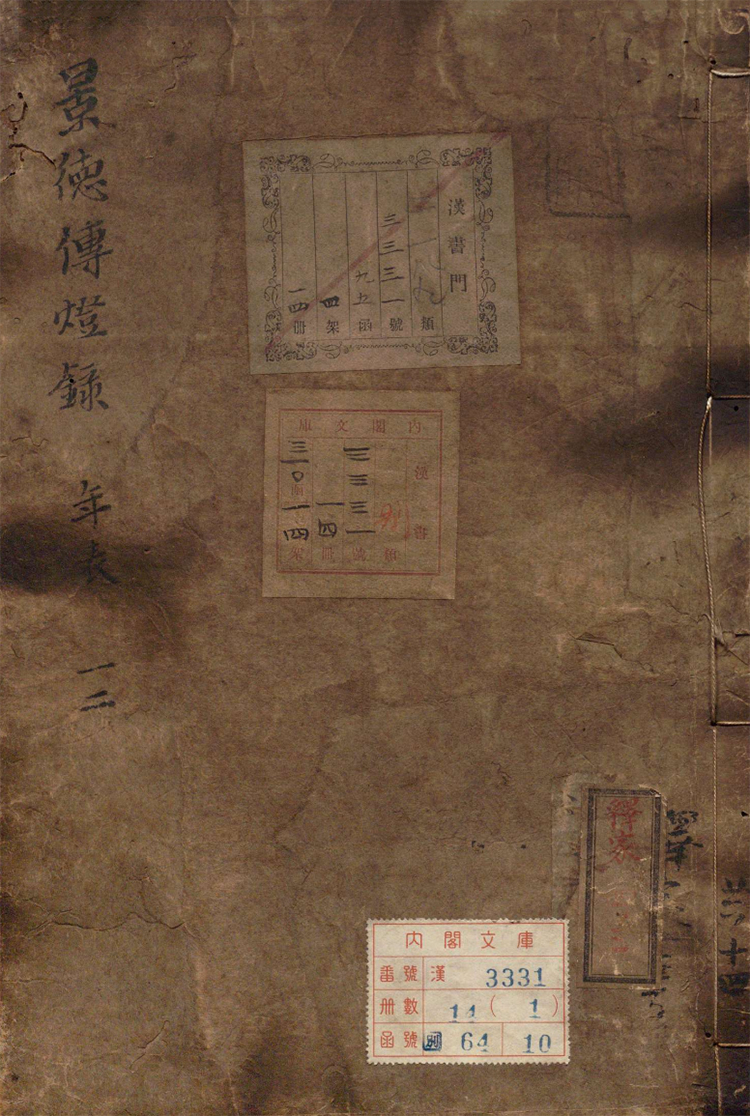 景德傳燈録 年表 一二
漢書門
類
三三三一號
九五函
四架
一四冊
内閣文庫
漢書
類
三三三一號
一四冊
三一〇函
一四架
釋家
共十四
內閣文庫
番號 漢 3331
冊數 14 ( 1 )
函號 別 64 10